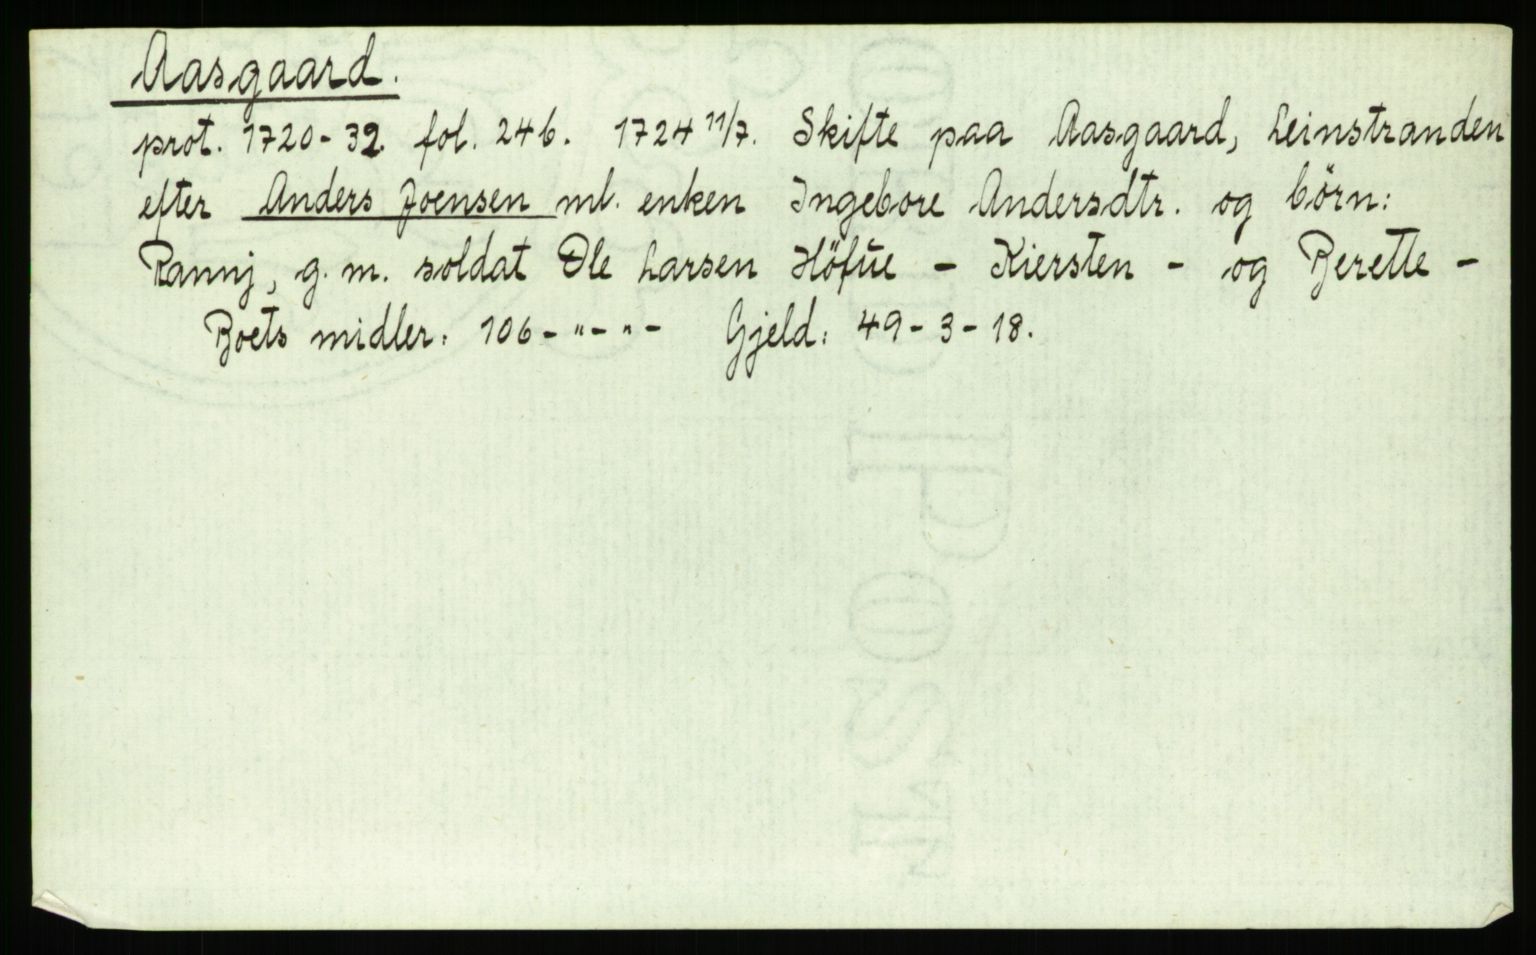 Aasgaard.
prot. 1720-32. fol. 246. 1724 11/7. Skifte paa Aasgaard, Leinstranden
efter Anders Joensen ml. enken Ingebore Andersdtr. og börn:
Rannj, g. m. soldat Ole Larsen Höfue - Kiersten - og Berette -
Boets midler: 106-"-"- Gjeld: 49-3-18.